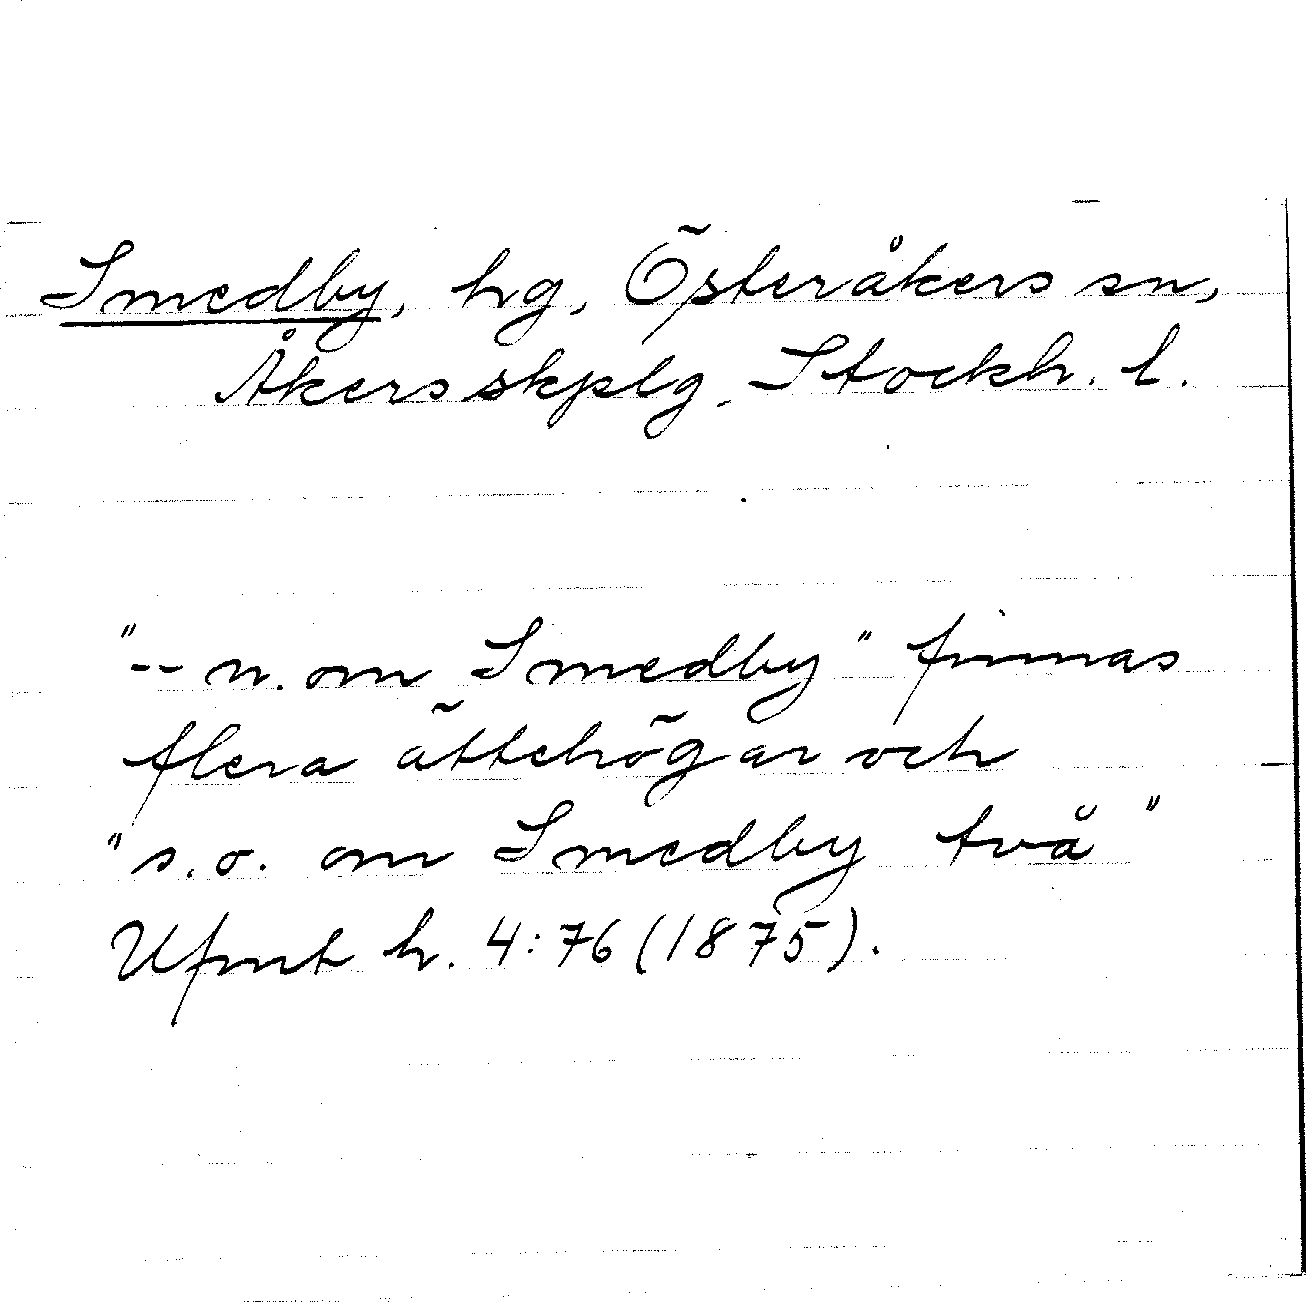 Smedby, hg, Österåkers sn,
Åkers skplg, Stockh. l.
"-- n. om Smedby" finnas
flera ättehögar och
"s.o. om Smedby två"
Ufmt h. 4:76 (1875).